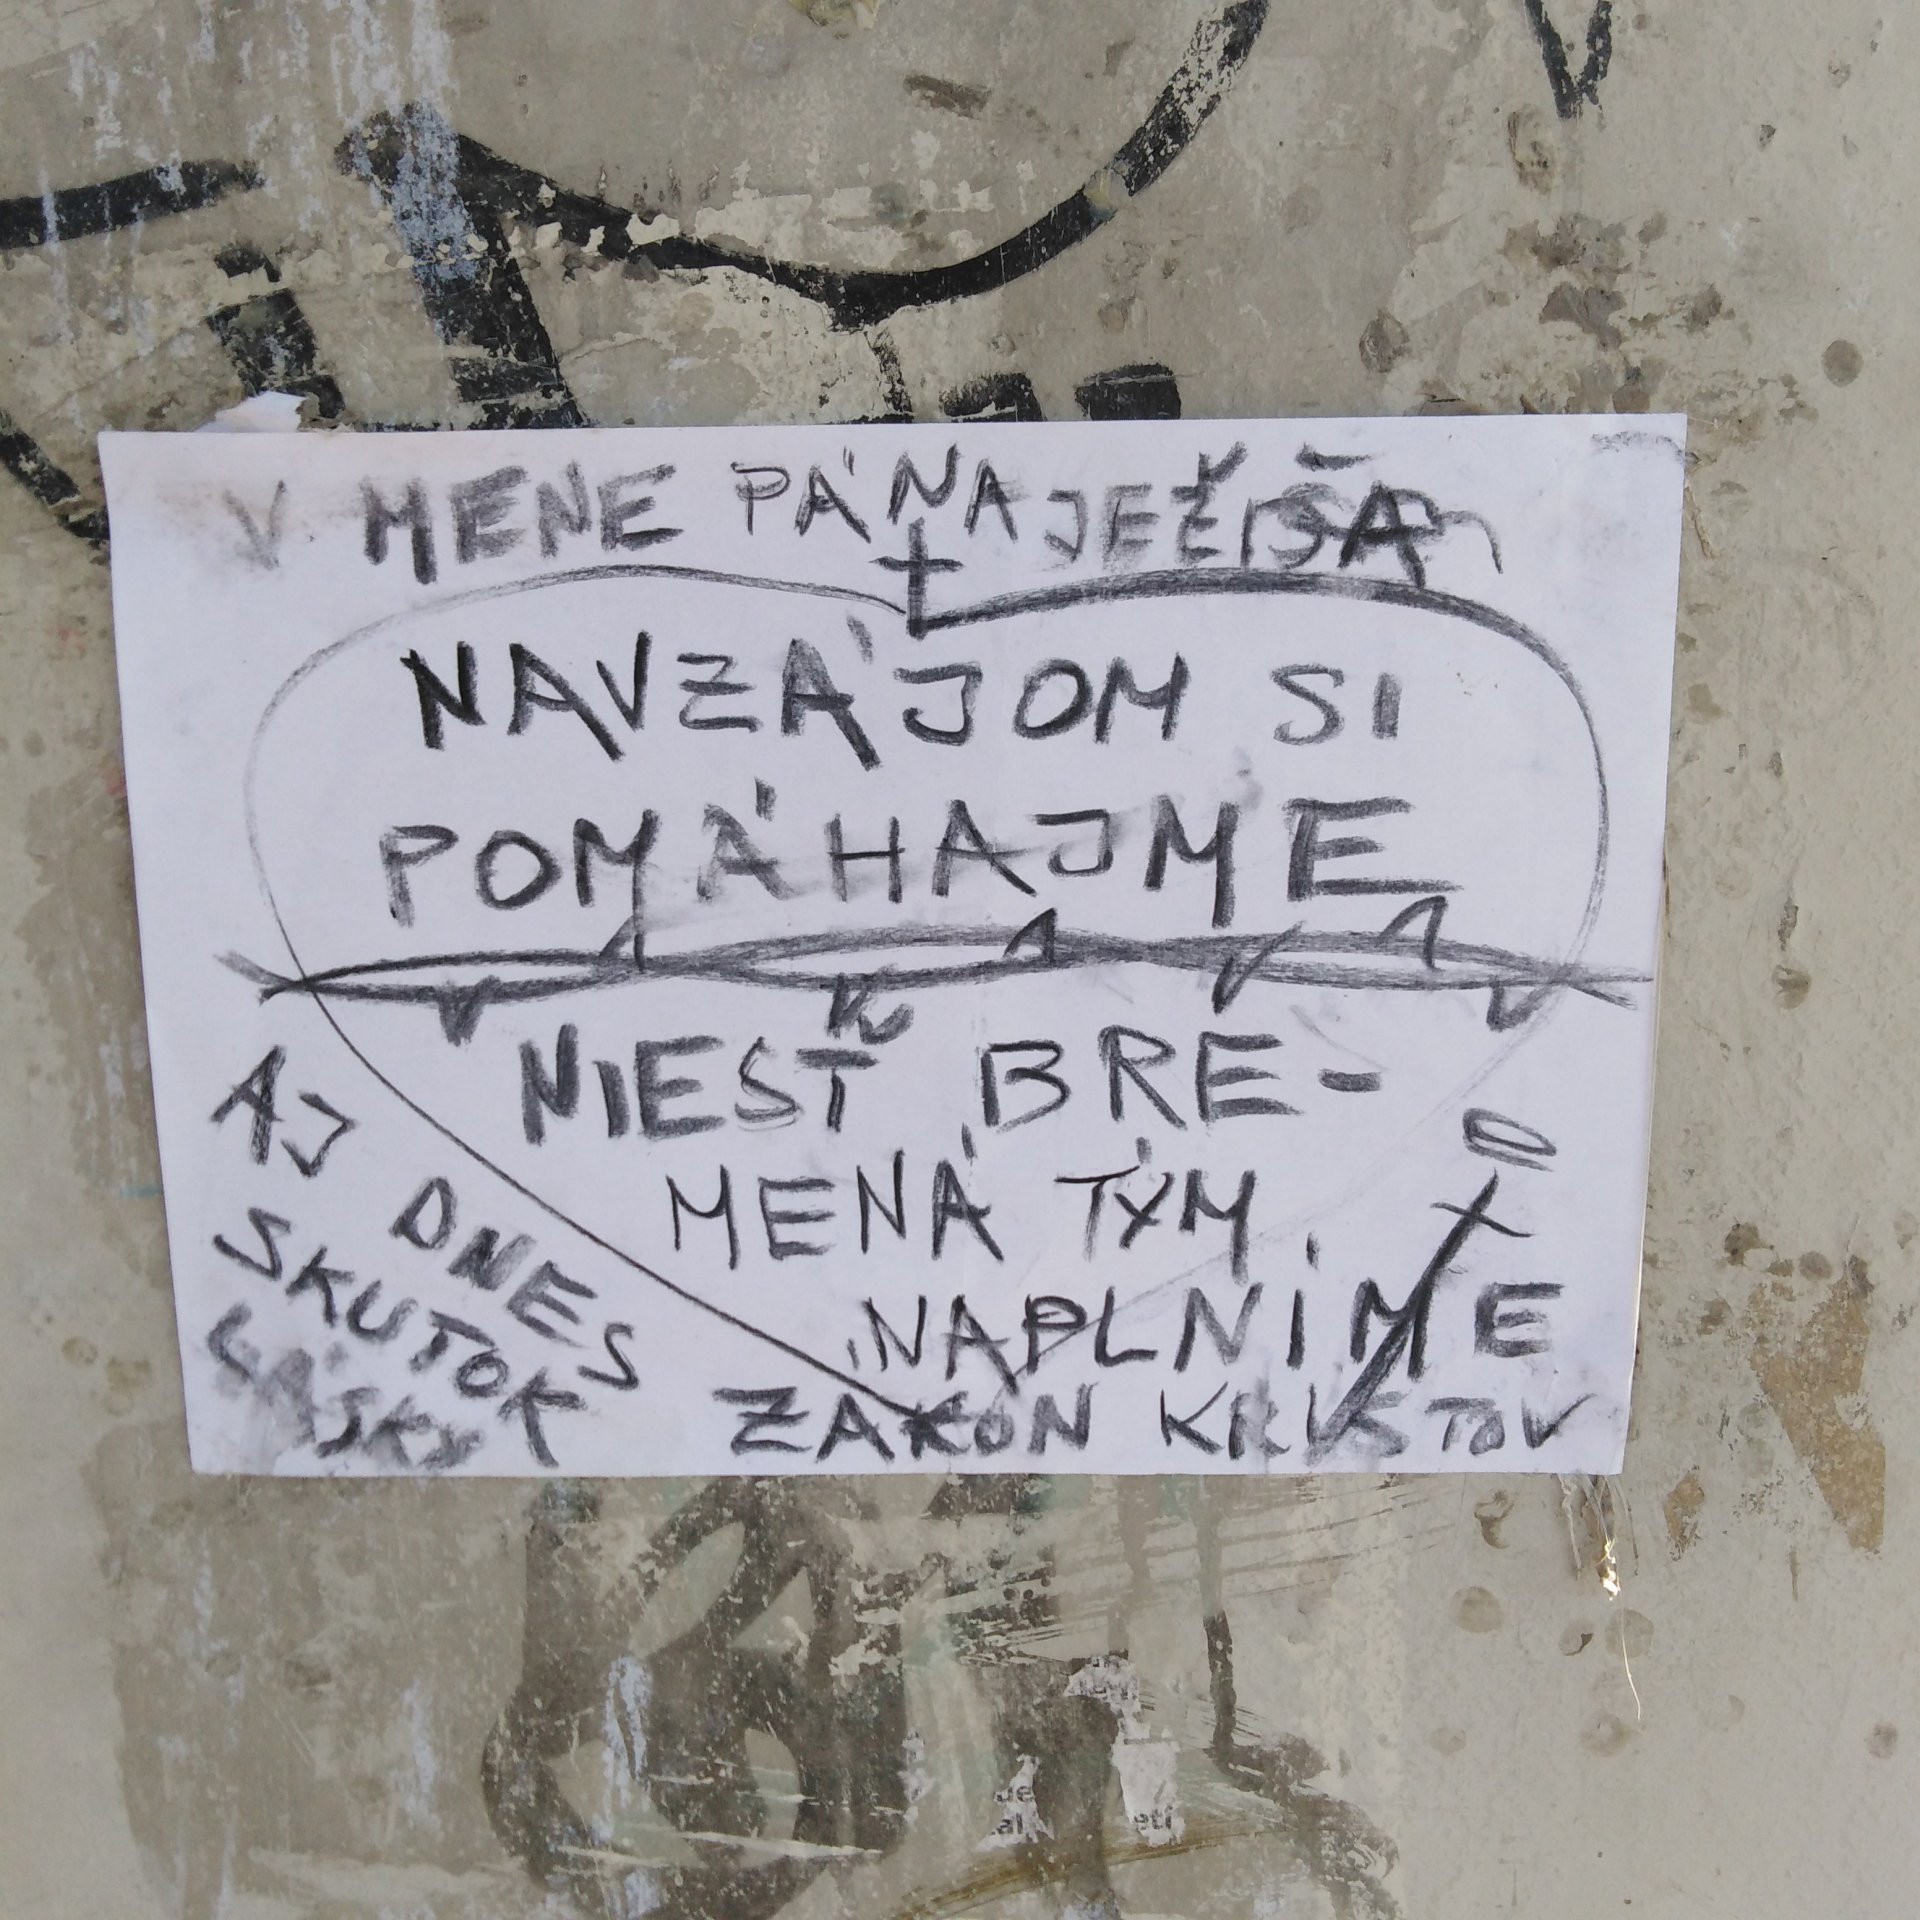 V MENE PÁNA JEŽIŠA
NAVZÁJOM SI
POMÁHAJME
NIESŤ BRÉ-
MENÁ TÝM
NAPLNÍME
ZÁKON KRISTOV
AJ
DNES
SKUTOK
LÁSKY